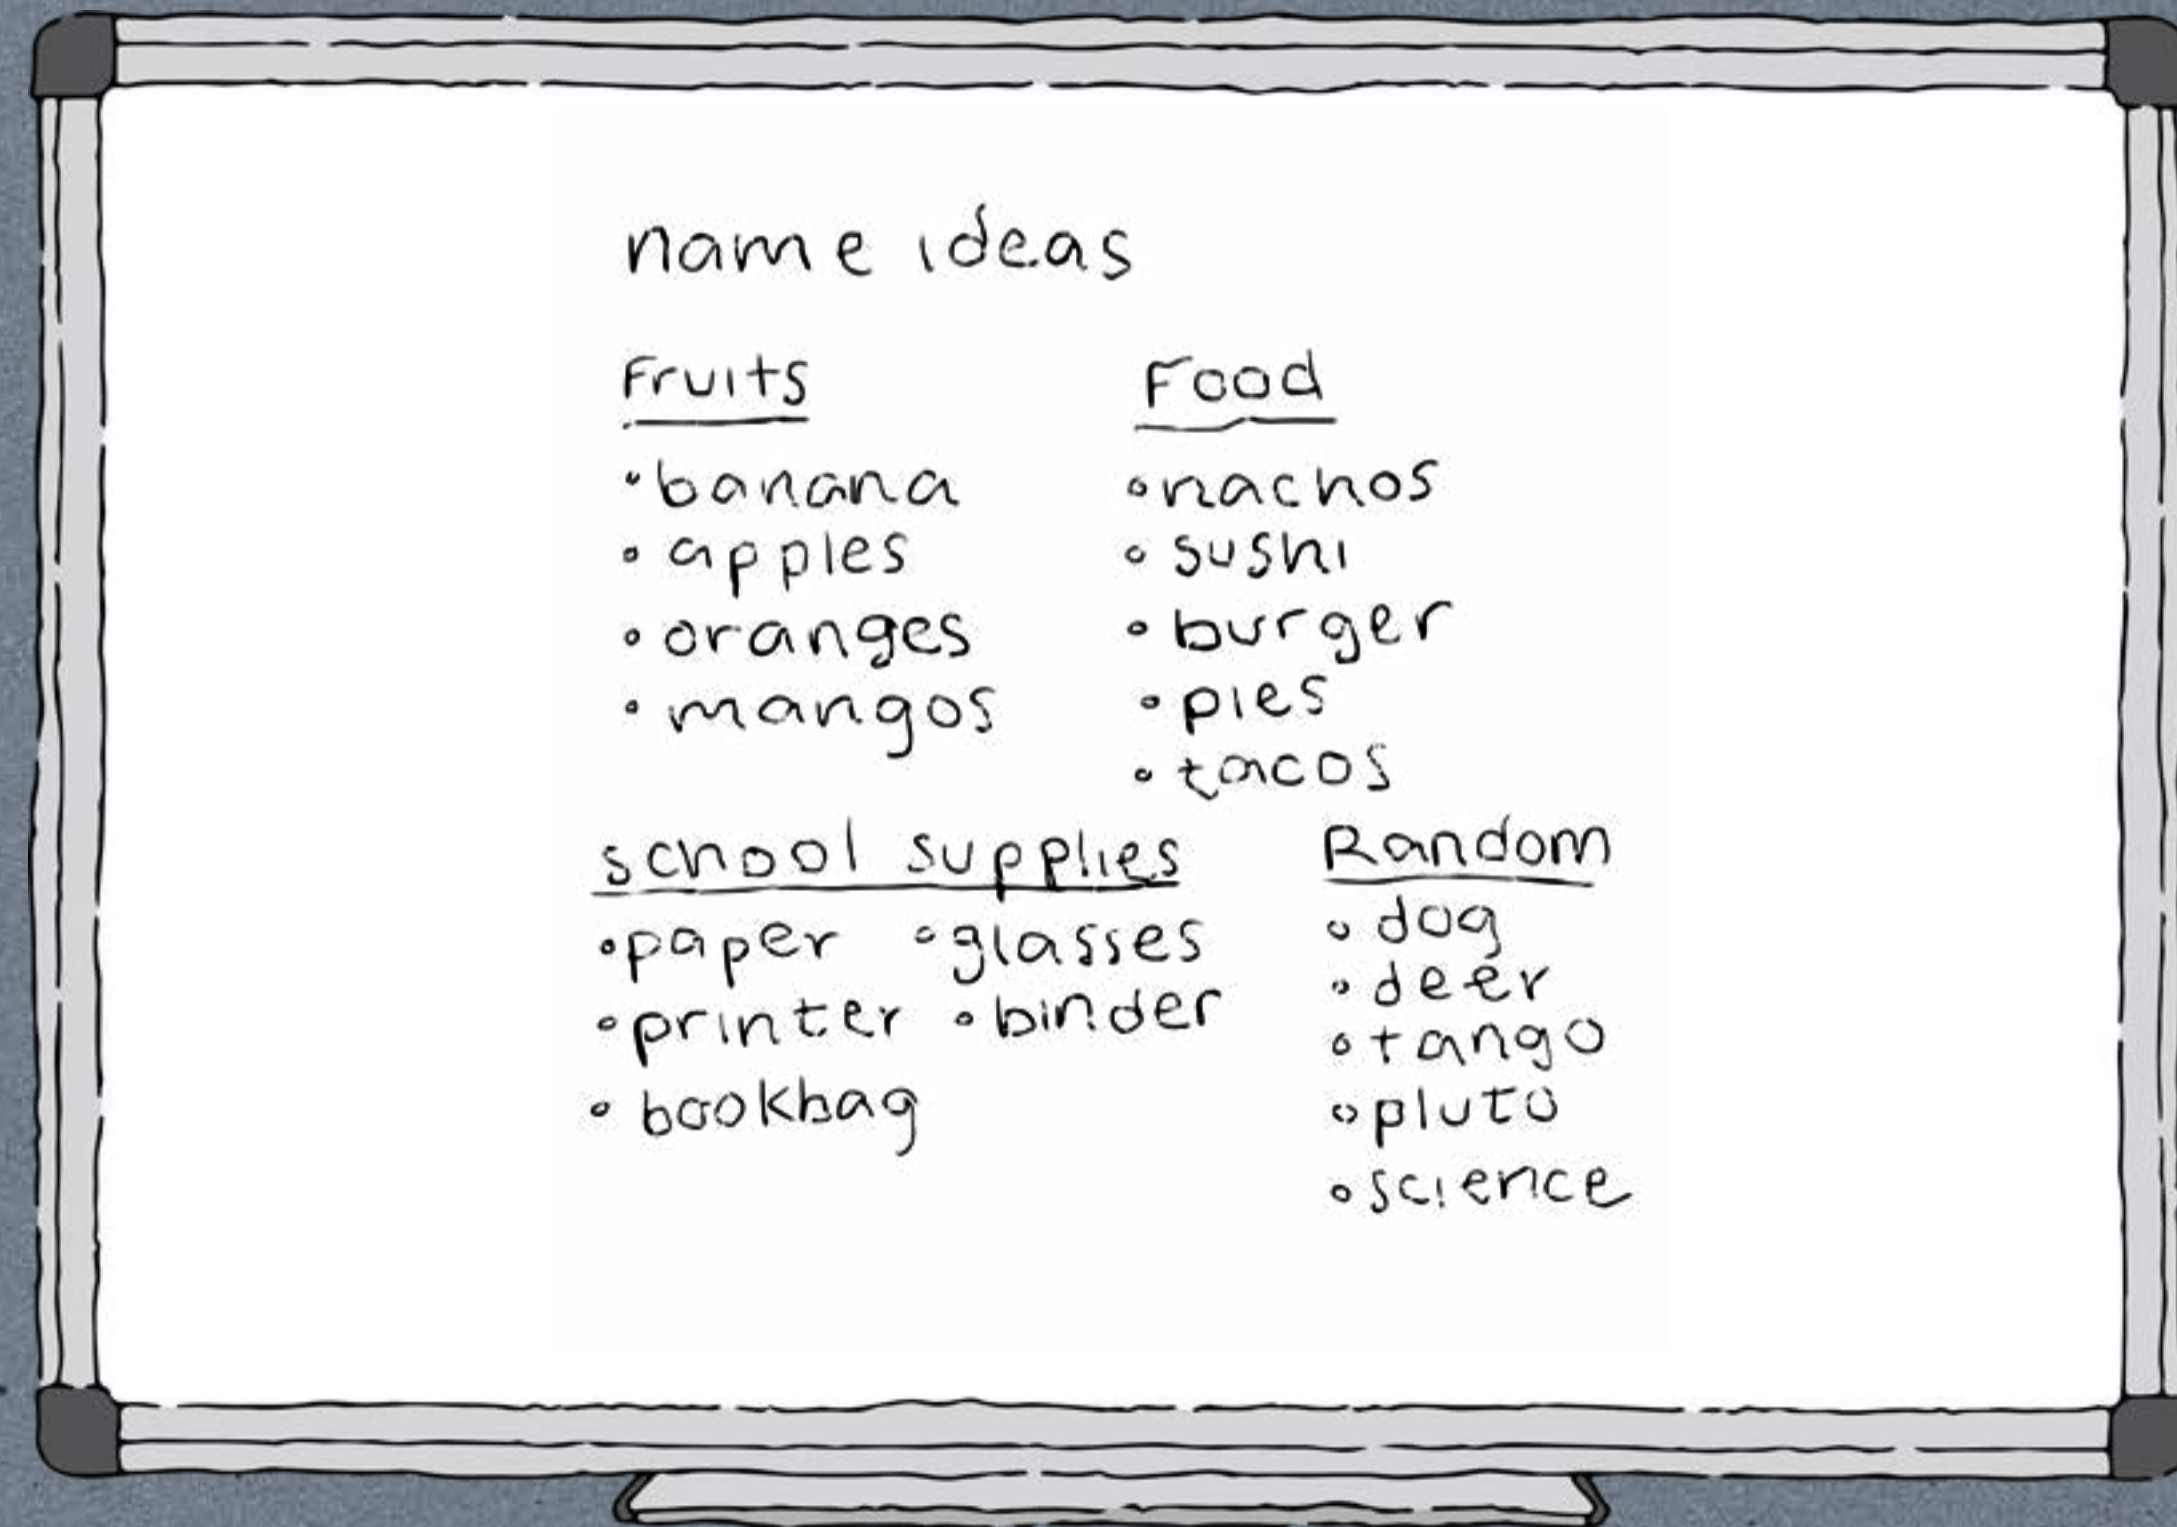 name ideas
Fruits
• banana
• apples
• oranges
• mangos
Food
• nachos
• sushi
• burger
• pies
• tacos
school supplies
• paper • glasses
• printer • binder
• bookbag
Random
• dog
• deer
• tango
• pluto
• science